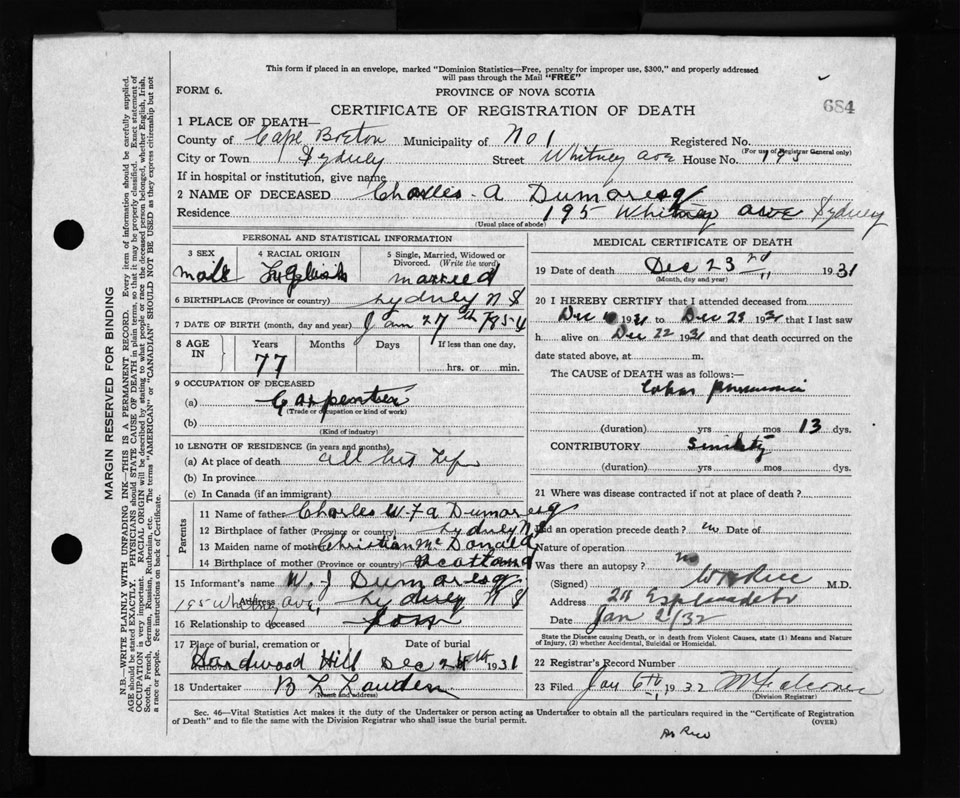 This form if placed in an envelope, marked "Dominion Statistics—Free, penalty for improper use, $300," and properly addressed
will pass through the Mail "FREE"
FORM 6.
PROVINCE OF NOVA SCOTIA
684
CERTIFICATE OF REGISTRATION OF DEATH
1 PLACE OF DEATH—
County of Cape Breton Municipality of No 1 Registered No.
(For use of Registrar General only)
City or Town Sydney Street Whitney Ave House No. 195
If in hospital or institution, give name
2 NAME OF DECEASED Charles A Dumaresq
Residence 195 Whitney Ave Sydney
(Usual place of abode)
PERSONAL AND STATISTICAL INFORMATION
3 SEX 4 RACIAL ORIGIN 5 Single, Married, Widowed or Divorced. (Write the word)
male English married
6 BIRTHPLACE (Province or country) Sydney N S
7 DATE OF BIRTH (month, day and year) Jan 27th 1854
8 AGE IN Years Months Days If less than one day,
77 hrs. or min.
9 OCCUPATION OF DECEASED
(a) Carpenter
(Trade or occupation or kind of work)
(b)
(Kind of industry)
10 LENGTH OF RESIDENCE (in years and months)
(a) At place of death all his life
(b) In province
(c) In Canada (if an immigrant)
Parents
11 Name of father Charles W F A Dumaresq
12 Birthplace of father (Province or country) Sydney N S
13 Maiden name of mother Christian McDonald
14 Birthplace of mother (Province or country) Scotland
15 Informant's name W. J Dumaresq
Address 195 Whitney Ave, Sydney N S
16 Relationship to deceased son
17 Place of burial, cremation or Date of burial
Hardwood Hill Dec 1931
18 Undertaker B L
(Name and address)
MEDICAL CERTIFICATE OF DEATH
19 Date of death Dec 23rd 1931
(Month, day and year)
20 I HEREBY CERTIFY that I attended deceased from
Dec 1931 to Dec 1931 that I last saw
h alive on Dec 22 1931 and that death occurred on the
date stated above, at m.
The CAUSE of DEATH was as follows:—
Lobar Pneumonia
(duration) yrs mos 13 dys.
CONTRIBUTORY Senility
(duration) yrs mos dys.
21 Where was disease contracted if not at place of death?
Did an operation precede death? no Date of
Nature of operation
Was there an autopsy? no
(Signed) M.D.
Address 211 Esplanade
Date Jan 2/32
State the Disease causing Death, or in death from Violent Causes, state (1) Means and Nature
of Injury, (2) whether Accidental, Suicidal or Homicidal.
22 Registrar's Record Number
23 Filed Jan 6th 1932
(Division Registrar)
Sec. 46—Vital Statistics Act makes it the duty of the Undertaker or person acting as Undertaker to obtain all the particulars required in the "Certificate of Registration
of Death" and to file the same with the Division Registrar who shall issue the burial permit.
(OVER)
MARGIN RESERVED FOR BINDING
N.B.—WRITE PLAINLY WITH UNFADING INK—THIS IS A PERMANENT RECORD. Every item of information should be carefully supplied.
AGE should be stated EXACTLY. PHYSICIANS should STATE CAUSE OF DEATH in plain terms, so that it may be properly classified. Exact statement of
OCCUPATION is very important. RACIAL ORIGIN will be described by stating to what people or race the deceased person belonged, whether English, Irish,
Scotch, French, German, Russian, Ruthenian, etc. The terms "AMERICAN" or "CANADIAN" SHOULD NOT BE USED as they express citizenship but not
a race or people. See instructions on back of Certificate.